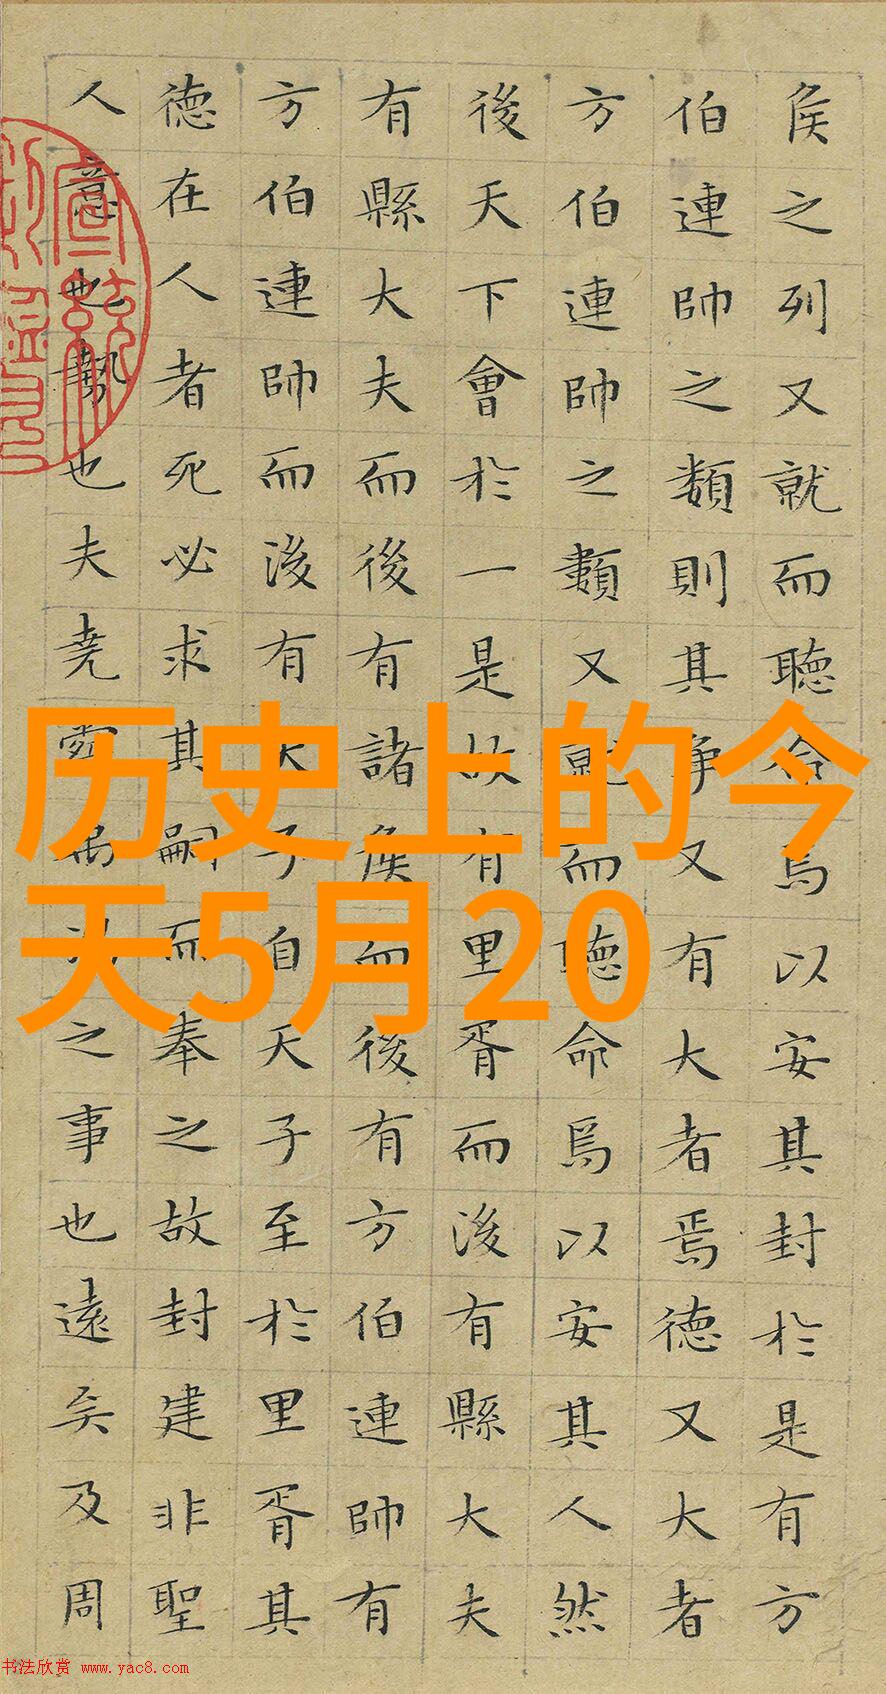 侯之列又就而聽命焉以安其封於是有方
伯連帥之類則其爭又有大者焉德又大者
方伯連帥之類又就而聽命焉以安其人然
後天下會於一是故有里胥而後有縣大夫
有縣大夫而後有諸侯而後有方伯連帥有
方伯連帥而後有天子自天子至於里胥其
德在人者死必求其嗣而奉之故封建非聖
人意也勢也夫堯舜禹湯之事也遠矣及周
历史上的今
天5月20
书法欣赏 www.yac8.com